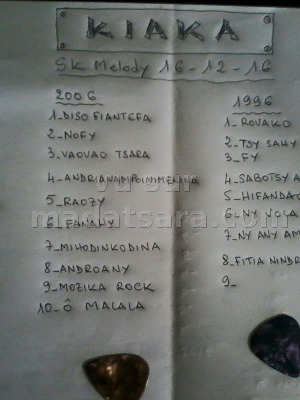 KIAKA
SK Melody 16-12-16
2006
1_DISO FIANTEFA
2_NOFY
3_VAOVAO TSARA
4_ANDRIAWAMPOINIMERINA
5_RAOZY
6_FANAHY
7_MIHODINKODINA
8_ANDROANY
9_MOZIKA ROCK
10_Ô MALALA
1996
1_ROVAKO
2_TSY SAHY
3_FY
4_SABOTSY A
5_HIFANDAO
6_NY VOLA
7_NY ANY AM
8_FITIA NINDR
9_
vu sur
madatsara.com